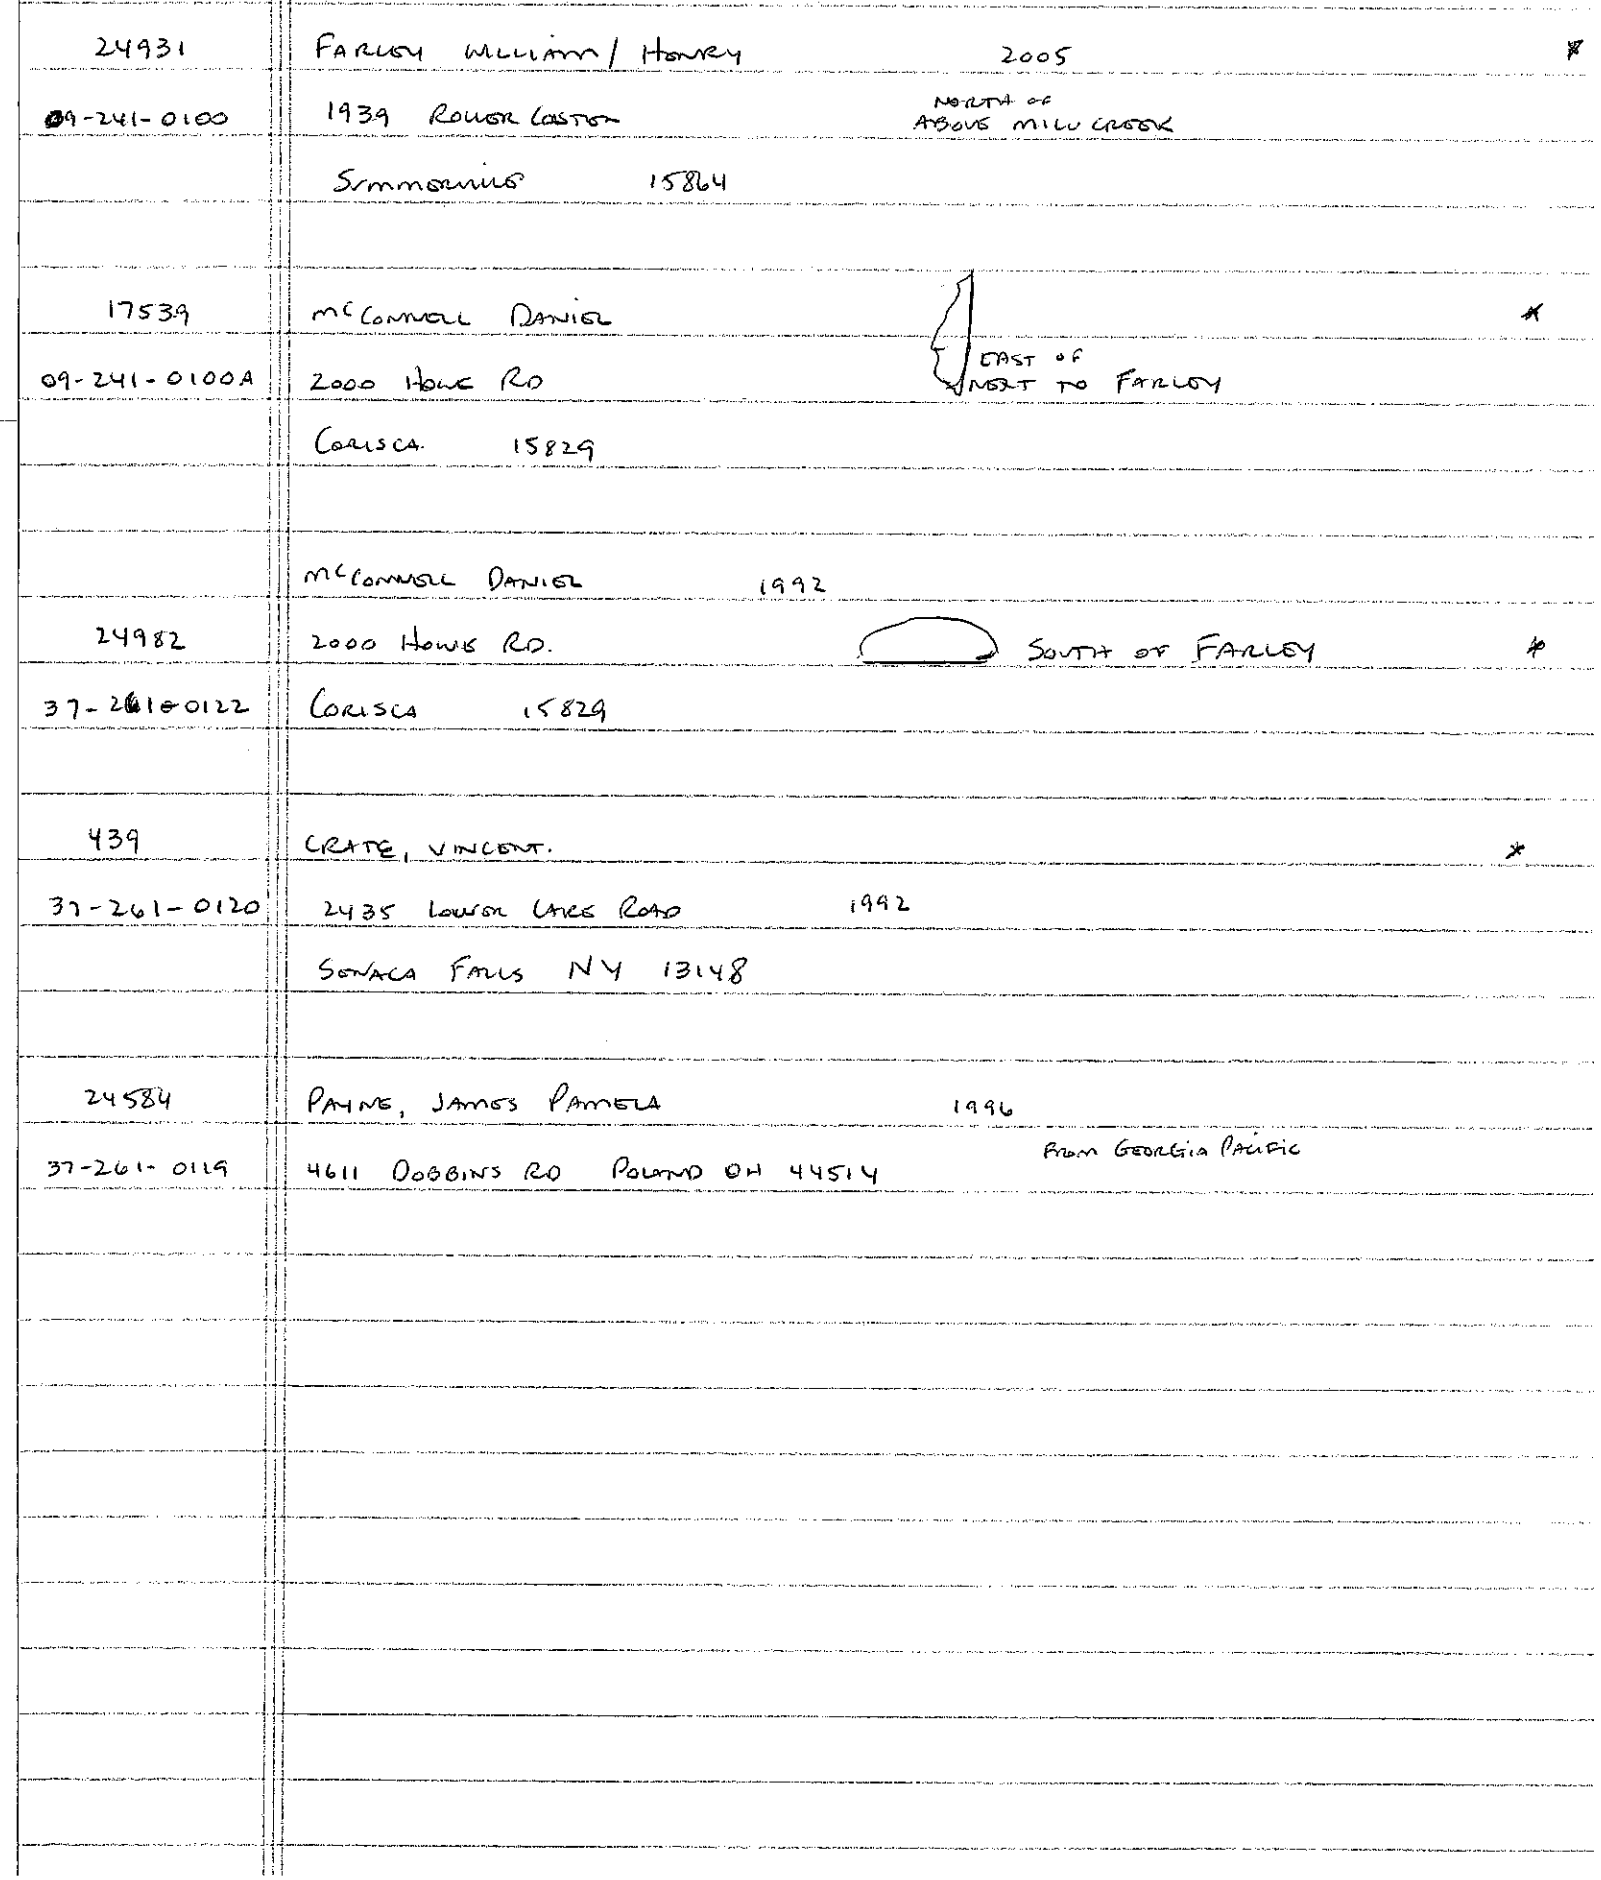 24931 FARLEY WILLIAM / HENRY 2005 *
NORTH OF
09-241-0100 1939 ROLLER COSTER ABOVE MILL CREEK
SUMMERVILLE 15864
17539 McCONNELL DANIEL *
EAST OF
09-241-0100A 2000 HOWE RD NEXT TO FARLEY
CORISCA. 15829
McCONNELL DANIEL 1992
24982 2000 HOWE RD. SOUTH OF FARLEY *
37-261-0122 CORISCA 15829
439 CRATE, VINCENT. *
37-261-0120 2435 LOWER LAKE ROAD 1992
SENACA FALLS NY 13148
24584 PAYNE, JAMES PAMELA 1996
FROM GEORGIA PACIFIC
37-261-0119 4611 DOBBINS RD POLAND OH 44514